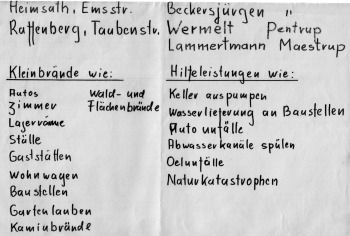 Heimsath, Emsstr.
Rattenberg, Taubenstr.
Beckersjürgen "
Wermelt Pentrup
Lammertmann Maestrup
Kleinbrände wie:
Autos
Zimmer
Lagerräume
Ställe
Gaststätten
Wohnwagen
Baustellen
Gartenlauben
Kaminbrände
Wald- und
Flächenbrände
Hilfeleistungen wie:
Keller auspumpen
Wasserlieferung an Baustellen
Auto unfälle
Abwasserkanäle spülen
Oelunfälle
Naturkatastrophen